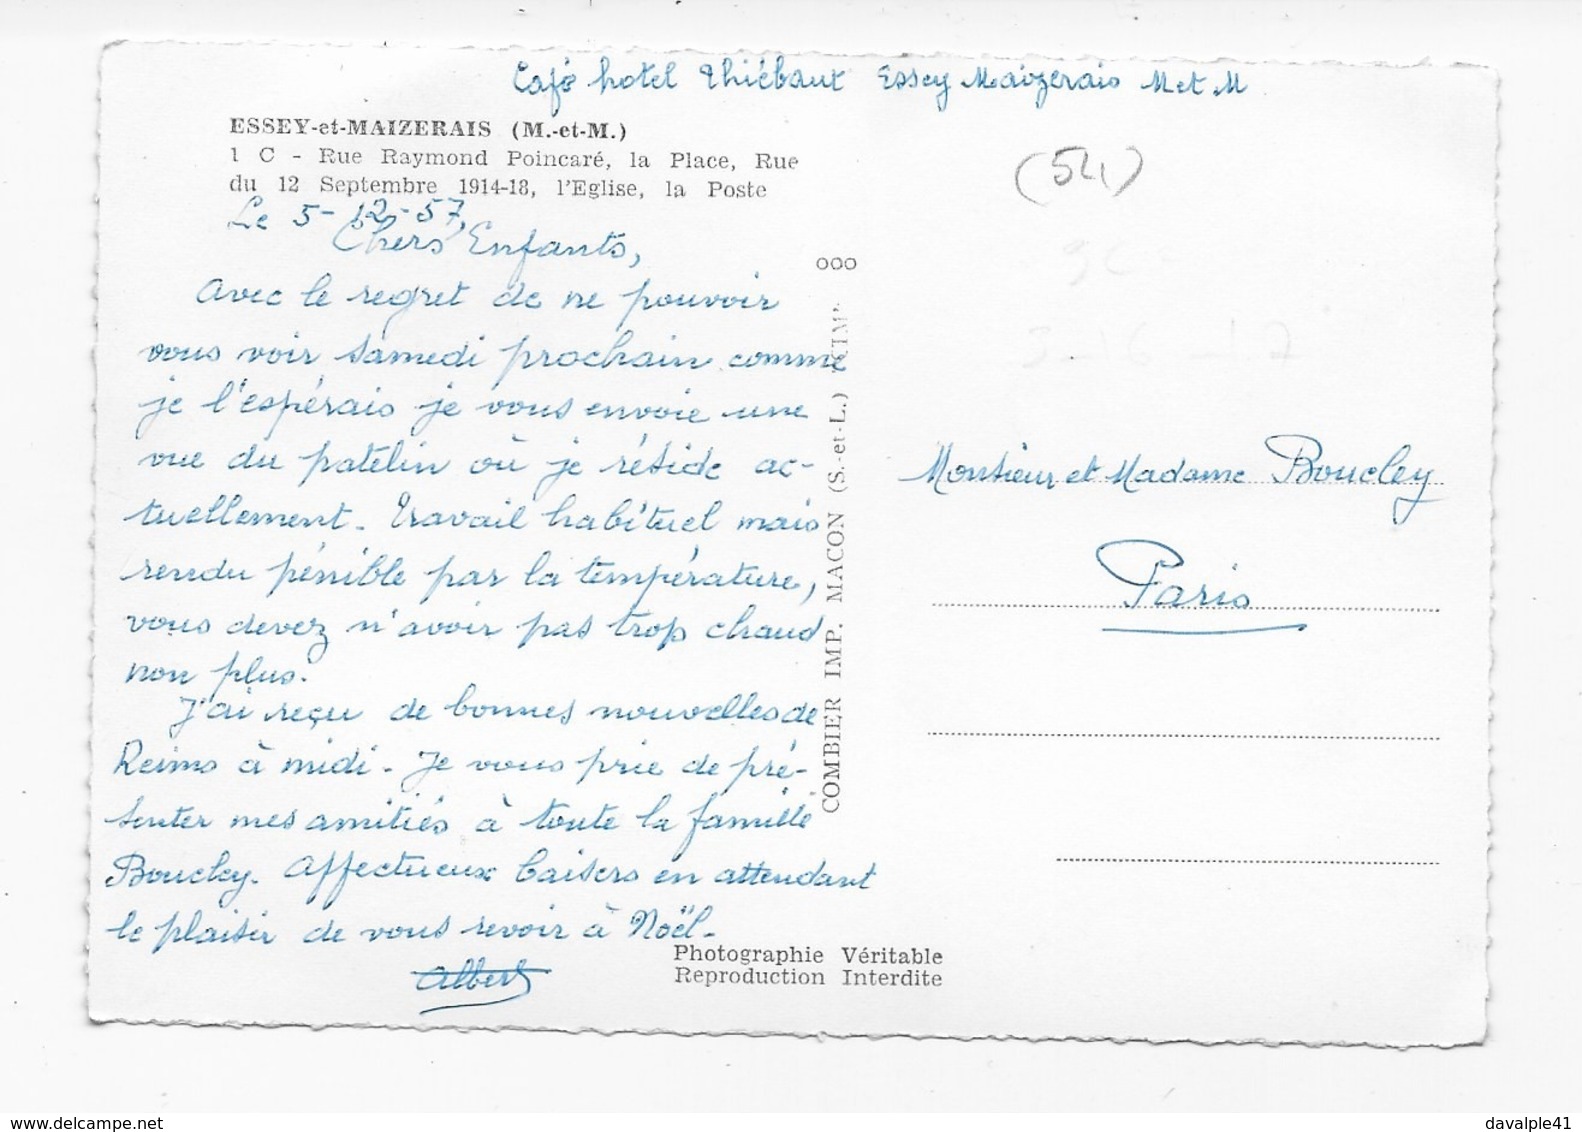 Café hotel Thiébaut Essey Maizerais M et M
ESSEY-et-MAIZERAIS (M.-et-M.)
1 C - Rue Raymond Poincaré, la Place, Rue
du 12 Septembre 1914-18, l'Eglise, la Poste
(54)
Le 5-12-57,
Chers Enfants,
Avec le regret de ne pouvoir
vous voir samedi prochain comme
je l'espérais je vous envoie une
vue du patelin où je réside ac-
tuellement. Travail habituel mais
rendu pénible par la température,
vous devez n'avoir pas trop chaud
non plus.
J'ai reçu de bonnes nouvelles de
Reims à midi. Je vous prie de pré-
senter mes amitiés à toute la famille
Boucley. Affectueux baisers en attendant
le plaisir de vous revoir à Noël.
Albert
ooo
COMBIER IMP. MACON (S.-et-L.)
Monsieur et Madame Boucley
Paris
Photographie Véritable
Reproduction Interdite
delcampe.net
davalple41